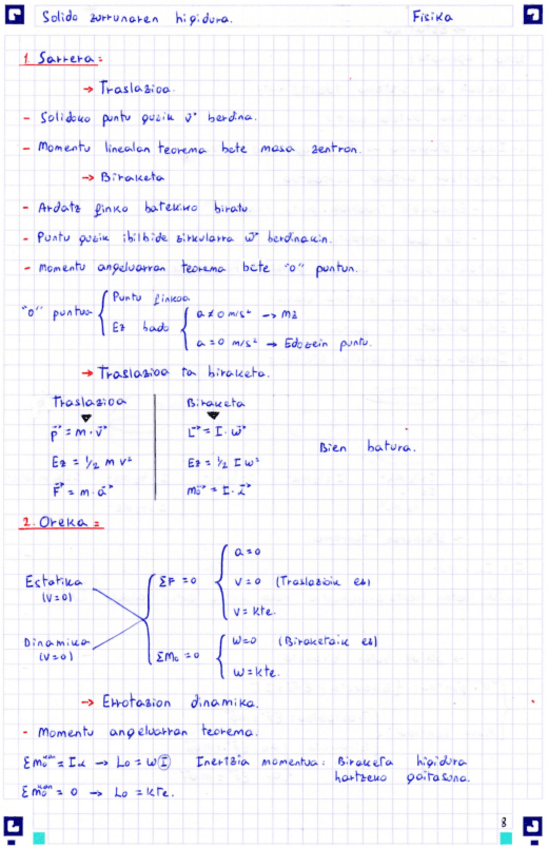 Solido zurrunaren higidura. Fisika
1. Sarrera:
→ Traslazioa.
- Solidoko puntu guzik v⃗ berdina.
- Momentu linealan teorema bete masa zentron.
→ Biraketa
- Ardatz finko batekiko biratu
- Puntu guzik ibilbide zirkularra w⃗ berdinakin.
- Momentu angeluarran teorema bete "o" puntun.
"o" puntua { Puntu finkoa
Ez bada { a ≠ 0 m/s² → MZ
a = 0 m/s² → Edozein puntu.
→ Traslazioa ta biraketa.
Traslazioa | Biraketa
p⃗ = m · v⃗ | L⃗ = I · w⃗
Ez = 1/2 m v² | Ez = 1/2 I w² Bien batura.
F⃗ = m · a⃗ | m⃗o = I · α⃗
2. Oreka =
Estatika (v=0)
Dinamika (v=0)
ΣF = 0 { a = 0
v = 0 (Traslaziоik ez)
v = kte.
ΣMo = 0 { w=0 (Biraketaik ez)
w = kte.
→ Errotazion dinamika.
- Momentu angeluarran teorema.
Σ mo kan = I α → Lo = w I Inertzia momentua: Biraketa higidura
hartzeko gaitasuna.
Σ mo kan = 0 → Lo = kte.
8